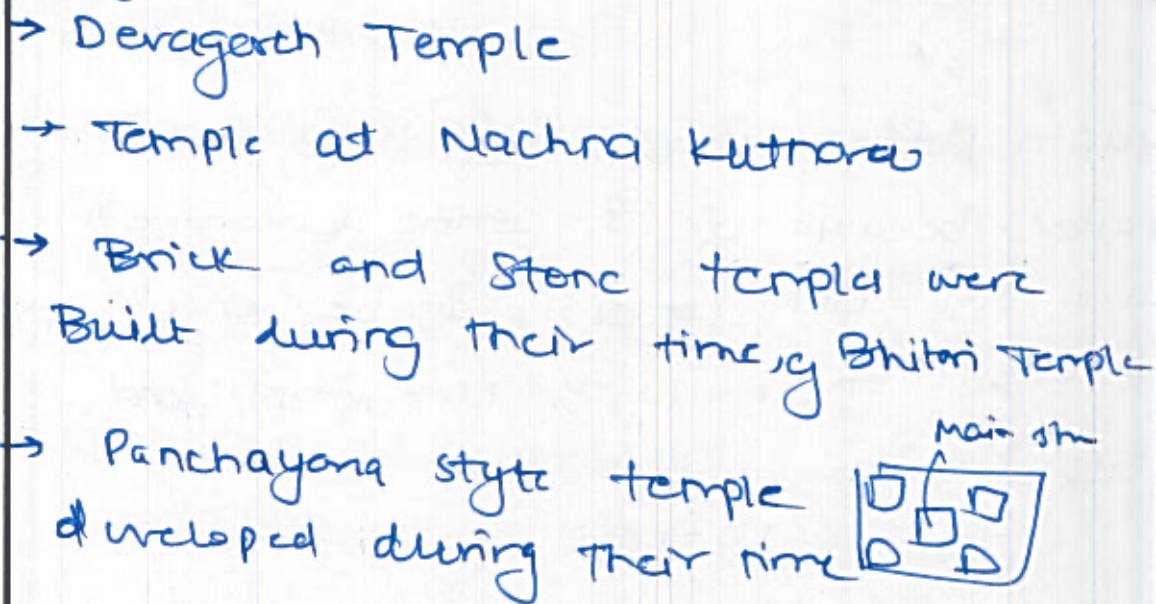 → Devagarh Temple
→ Temple at Nachna Kuthara
→ Brick and Stone temples were
Built during their time, eg Bhitari Temple
Main
→ Panchayana style temple
developed during their time